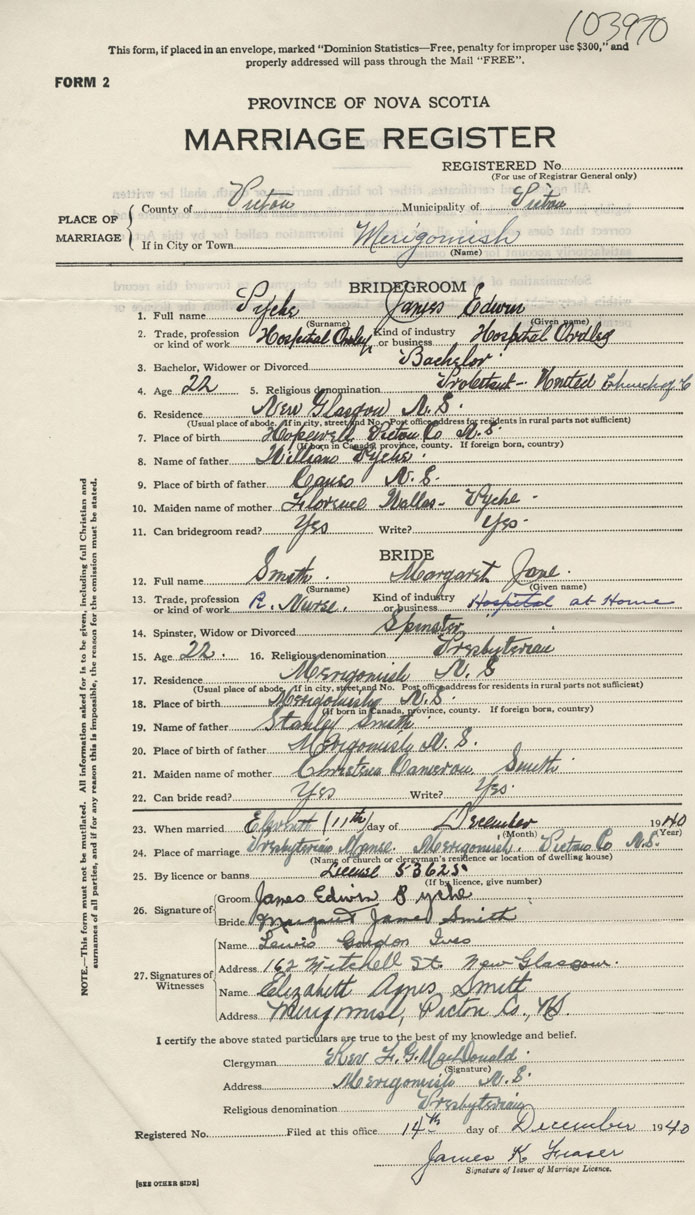 103970
This form, if placed in an envelope, marked "Dominion Statistics—Free, penalty for improper use $300," and
properly addressed will pass through the Mail "FREE".
FORM 2
PROVINCE OF NOVA SCOTIA
MARRIAGE REGISTER
REGISTERED No.
(For use of Registrar General only)
PLACE OF MARRIAGE
County of Pictou Municipality of Pictou
If in City or Town Merigomish
(Name)
BRIDEGROOM
1. Full name Pyche James Edwin
(Surname) (Given name)
2. Trade, profession or kind of work Hospital Orderly Kind of industry or business Hospital Ordley
3. Bachelor, Widower or Divorced Bachelor
4. Age 22 5. Religious denomination Protestant - United Church of C
6. Residence New Glasgow N.S.
(Usual place of abode. If in city, street and No. Post office address for residents in rural parts not sufficient)
7. Place of birth Hopewell Pictou Co N.S.
(If born in Canada, province, county. If foreign born, country)
8. Name of father William Pyche
9. Place of father Canso N.S.
10. Maiden name of mother Florence Wallas - Pyche
11. Can bridegroom read? Yes Write? Yes
BRIDE
12. Full name Smith Margaret Jane
(Surname) (Given name)
13. Trade, profession or kind of work R. Nurse. Kind of industry or business Hospital at Home
14. Spinster, Widow or Divorced Spinster
15. Age 22. 16. Religious denomination Presbyterian
17. Residence Merigomish N.S
(Usual place of abode. If in city, street and No. Post office address for residents in rural parts not sufficient)
18. Place of birth Merigomish N.S.
(If born in Canada, province, county. If foreign born, country)
19. Name of father Stanley Smith
20. Place of birth of father Merigomish N.S.
21. Maiden name of mother Christena Cameron Smith
22. Can bride read? Yes Write? Yes.
23. When married Eleventh (11th) day of December 1940
(Month) (Year)
24. Place of marriage Presbyterian Manse. Merigomish. Pictou Co N.S.
(Name of church or clergyman's residence or location of dwelling house)
25. By licence or banns License 53625
(If by licence, give number)
26. Signature of
Groom James Edwin Pyche
Bride Margaret James Smith
27. Signatures of Witnesses
Name Lewis Gordon Ives
Address 162 Mitchell St. New Glasgow.
Name Elizabeth Agnes Smith
Address Merigomish, Pictou Co., N.S.
I certify the above stated particulars are true to the best of my knowledge and belief.
Clergyman Rev F. G. MacDonald
(Signature)
Address Merigomish N.S.
Religious denomination Presbyterian
Registered No. Filed at this office 14th day of December 1940
James K Fraser
Signature of Issuer of Marriage Licence.
[SEE OTHER SIDE]
NOTE.—This form must not be mutilated. All information asked for is to be given, including full Christian and
surnames of all parties, and if for any reason this is impossible, the reason for the omission must be stated.